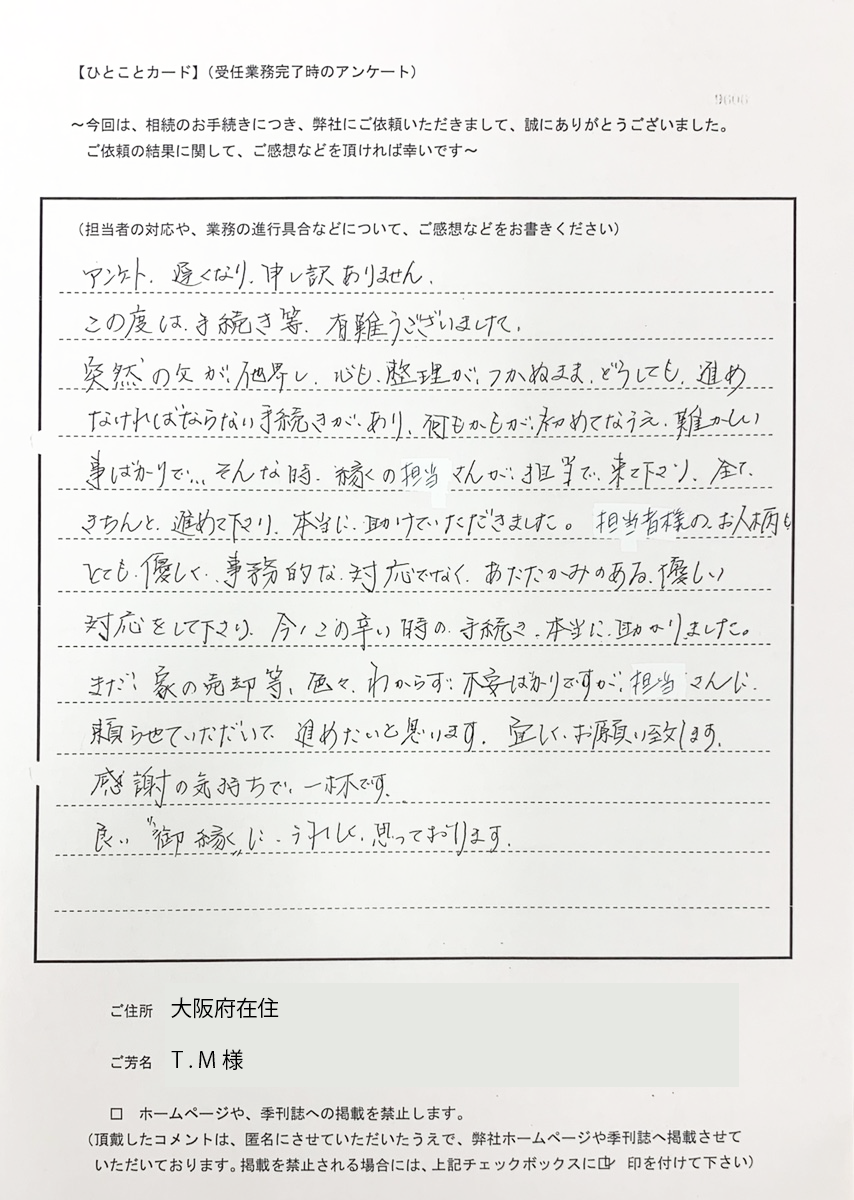 【ひとことカード】（受任業務完了時のアンケート）
9606
～今回は、相続のお手続きにつき、弊社にご依頼いただきまして、誠にありがとうございました。
ご依頼の結果に関して、ご感想などを頂ければ幸いです～
（担当者の対応や、業務の進行具合などについて、ご感想などをお書きください）
アンケト、遅くなり、申し訳ありません。
この度は、手続き等、有難うございました。
突然の父が、他界し、心も、整理が、つかぬまま、どうしても、進め
なければならない手続きが、あり、何もかもが、初めてなうえ、難かしい
事ばかりで… そんな時、縁くの担当さんが、担当で、来て下さり、全て、
きちんと、進めて下さり、本当に、助けていただきました。担当者様の、お人柄も
とても、優しく、事務的な、対応でなく、あたたかみのある、優しい
対応をして下さり、今、この辛い時の、手続き、本当に、助かりました。
まだ、家の売却等、色々、わからず、不安ばかりですが、担当さんに、
頼らせていただいて、進めたいと思います。宜しく、お願い致します。
感謝の気持ちで、一杯です。
良い〝御縁〟に、うれしく、思っております。
ご住所 大阪府在住
ご芳名 T.M様
□ ホームページや、季刊誌への掲載を禁止します。
（頂戴したコメントは、匿名にさせていただいたうえで、弊社ホームページや季刊誌へ掲載させて
いただいております。掲載を禁止される場合には、上記チェックボックスに☑ 印を付けて下さい）